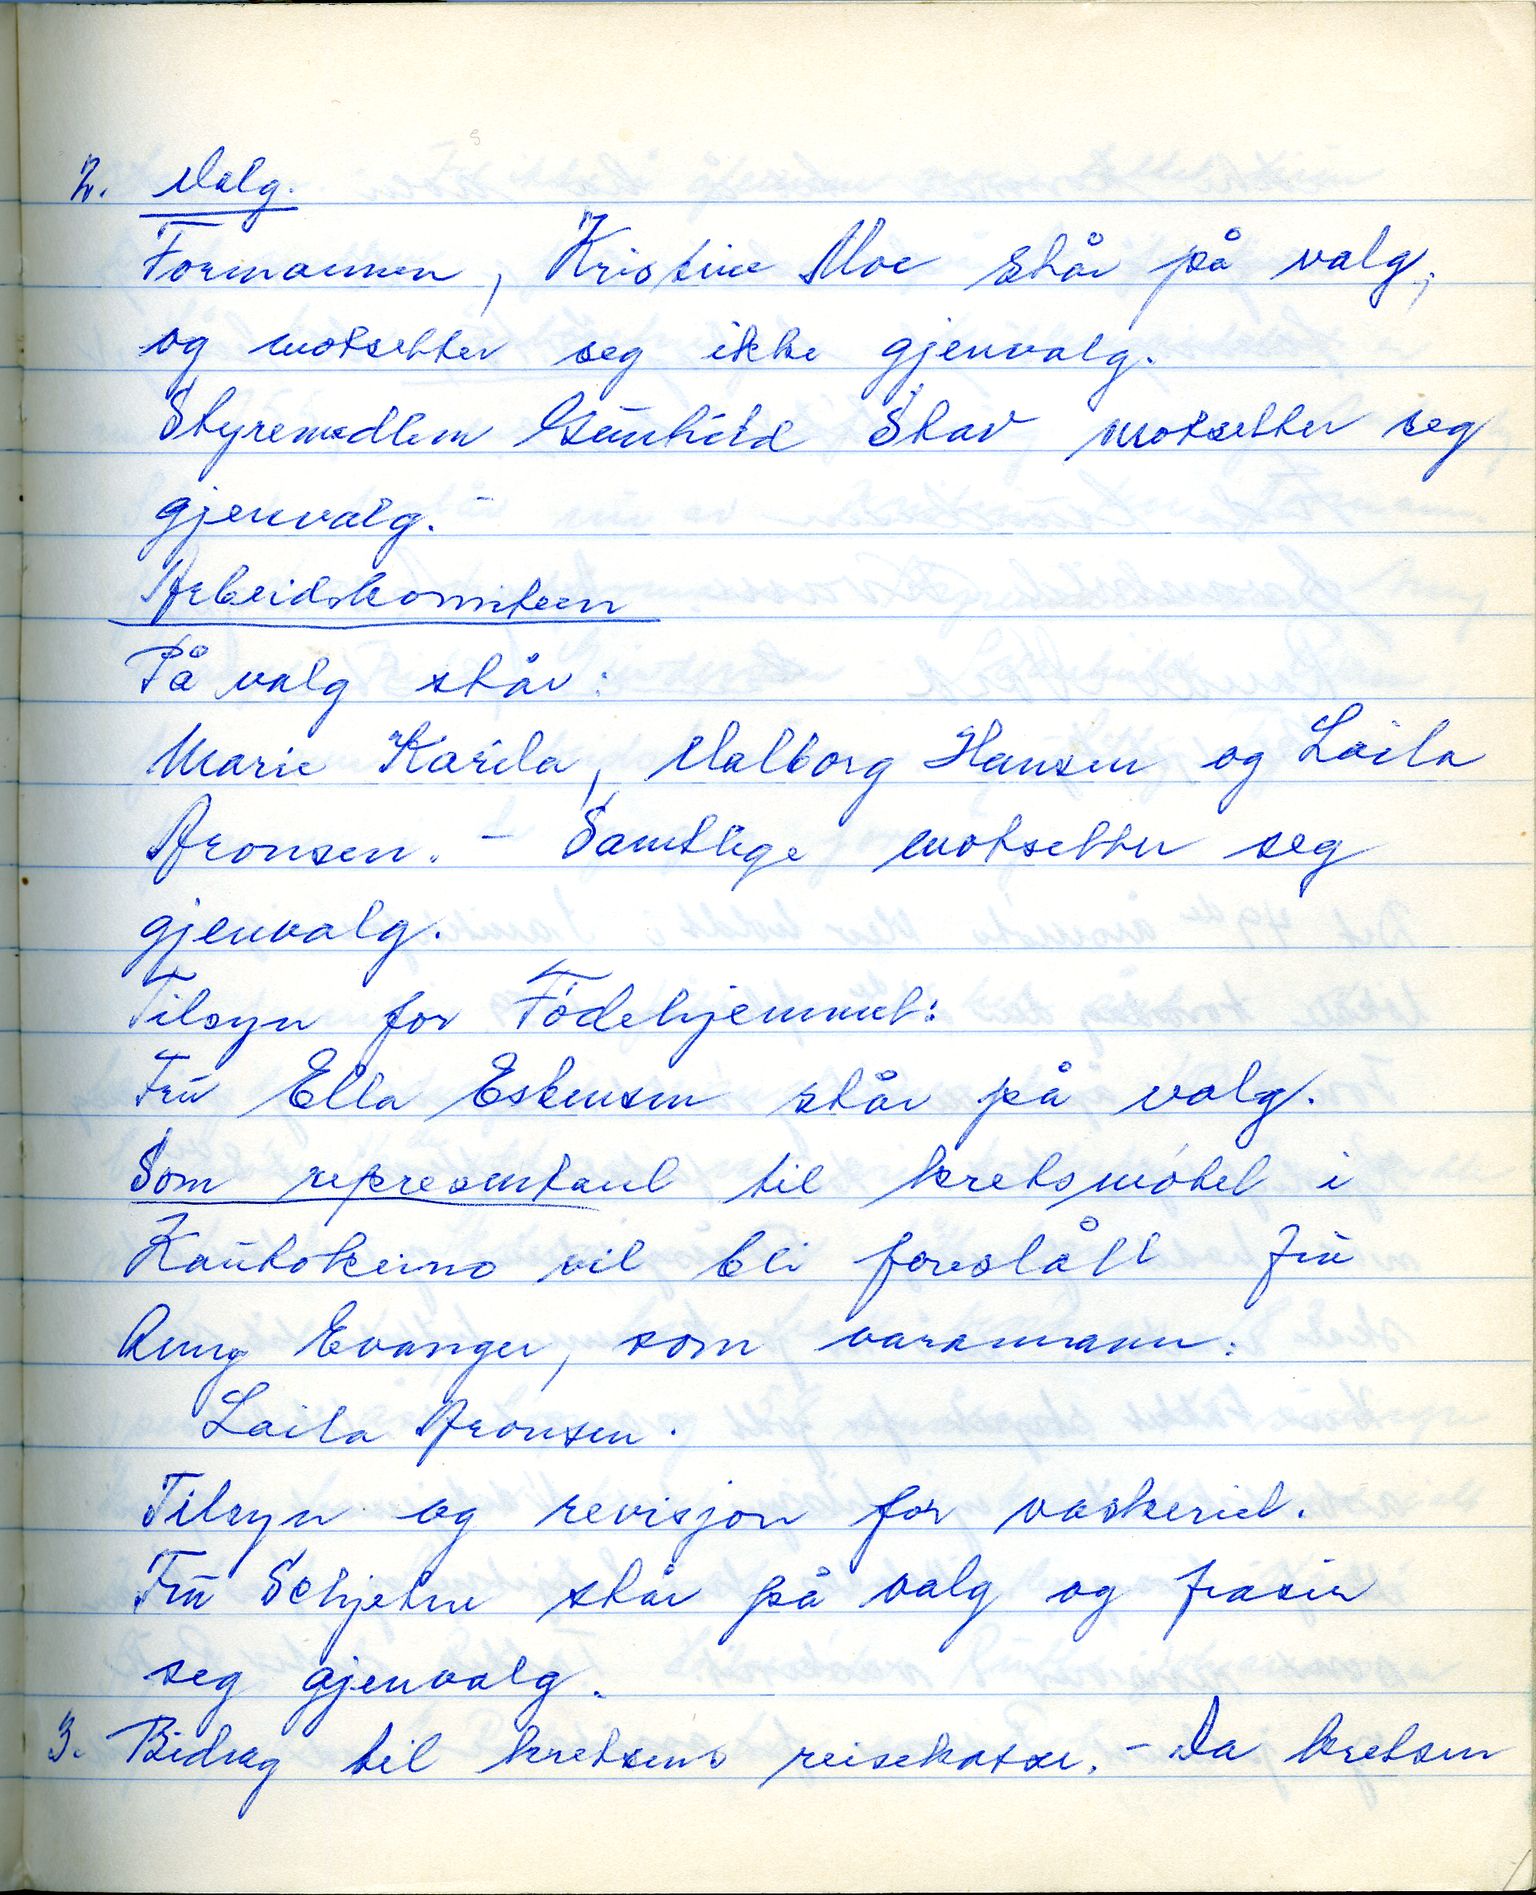 2. Valg.
Formannen, Kristine Moe står på valg,
og motsetter seg ikke gjenvalg.
Styremedlem Gunhild Skav motsetter seg
gjenvalg.
Arbeidskomiteen
På valg står:
Marie Karila, Valborg Hansen og Laila
Aronsen. – Samtlige motsetter seg
gjenvalg.
Tilsyn for Fødehjemmet:
Fru Ella Eskensen står på valg.
Som representant til kretsmøtet i
Kautokeino vil bli foreslått fru
Aung Evanger, som varamann:
Laila Aronsen.
Tilsyn og revisjon for vaskeriet.
Fru Schjetne står på valg og frasier
seg gjenvalg.
3. Bidrag til kretsens reisekasse. – Da kretsen